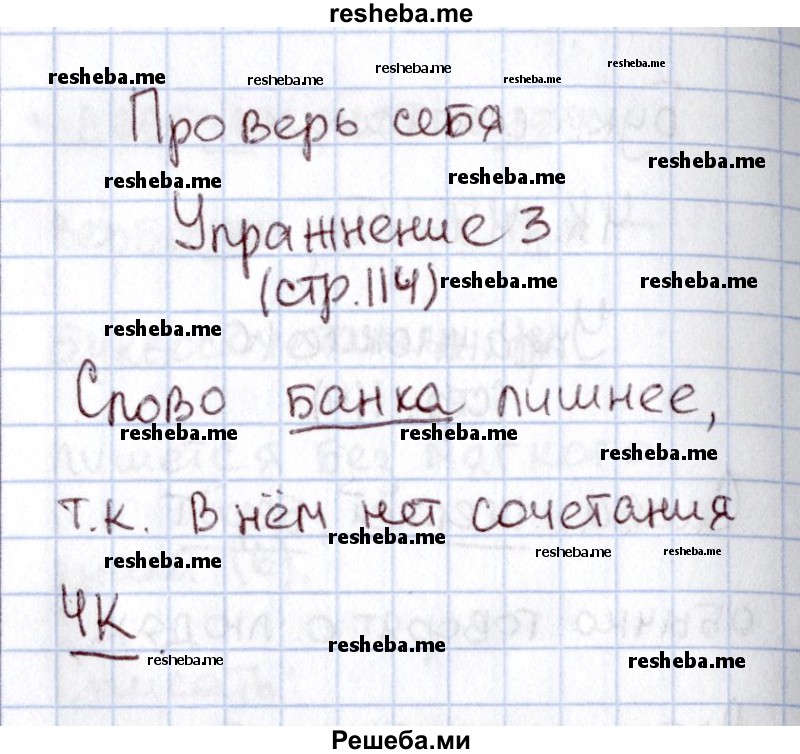 resheba.me
resheba.me resheba.me resheba.me resheba.me resheba.me
Проверь себя
resheba.me resheba.me resheba.me
Упражнение 3
(стр.114) resheba.me resheba.me
resheba.me
Слово банка лишнее,
resheba.me resheba.me resheba.me
т.к. в нём нет сочетания
resheba.me resheba.me resheba.me resheba.me
чк.
resheba.me resheba.me resheba.me
Решеба.ми